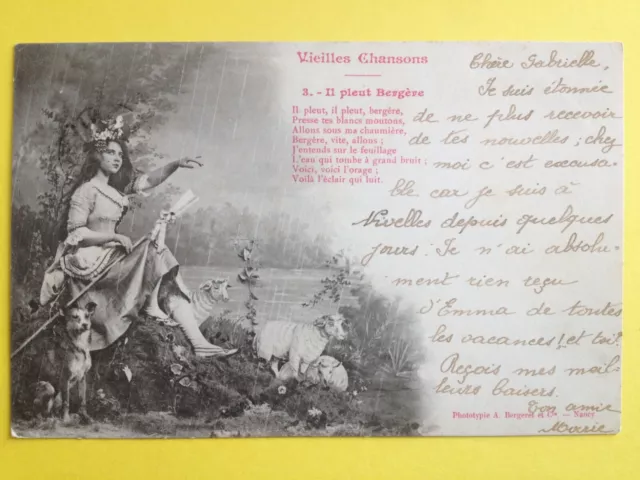 Vieilles Chansons
3. - Il pleut Bergère
Il pleut, il pleut, bergère,
Presse tes blancs moutons,
Allons sous ma chaumière,
Bergère, vite, allons ;
J'entends sur le feuillage
L'eau qui tombe à grand bruit ;
Voici, voici l'orage ;
Voilà l'éclair qui luit.
Chère Gabrielle,
Je suis étonnée
de ne plus recevoir
de tes nouvelles ; chez
moi c'est excusa-
ble car je suis à
Nivelles depuis quelques
jours. Je n'ai absolu-
ment rien reçu
d'Emma de toutes
les vacances ! et toi?
Reçois mes meil-
leurs baisers.
Ton amie
Marie
Phototypie A. Bergeret et Cie — Nancy